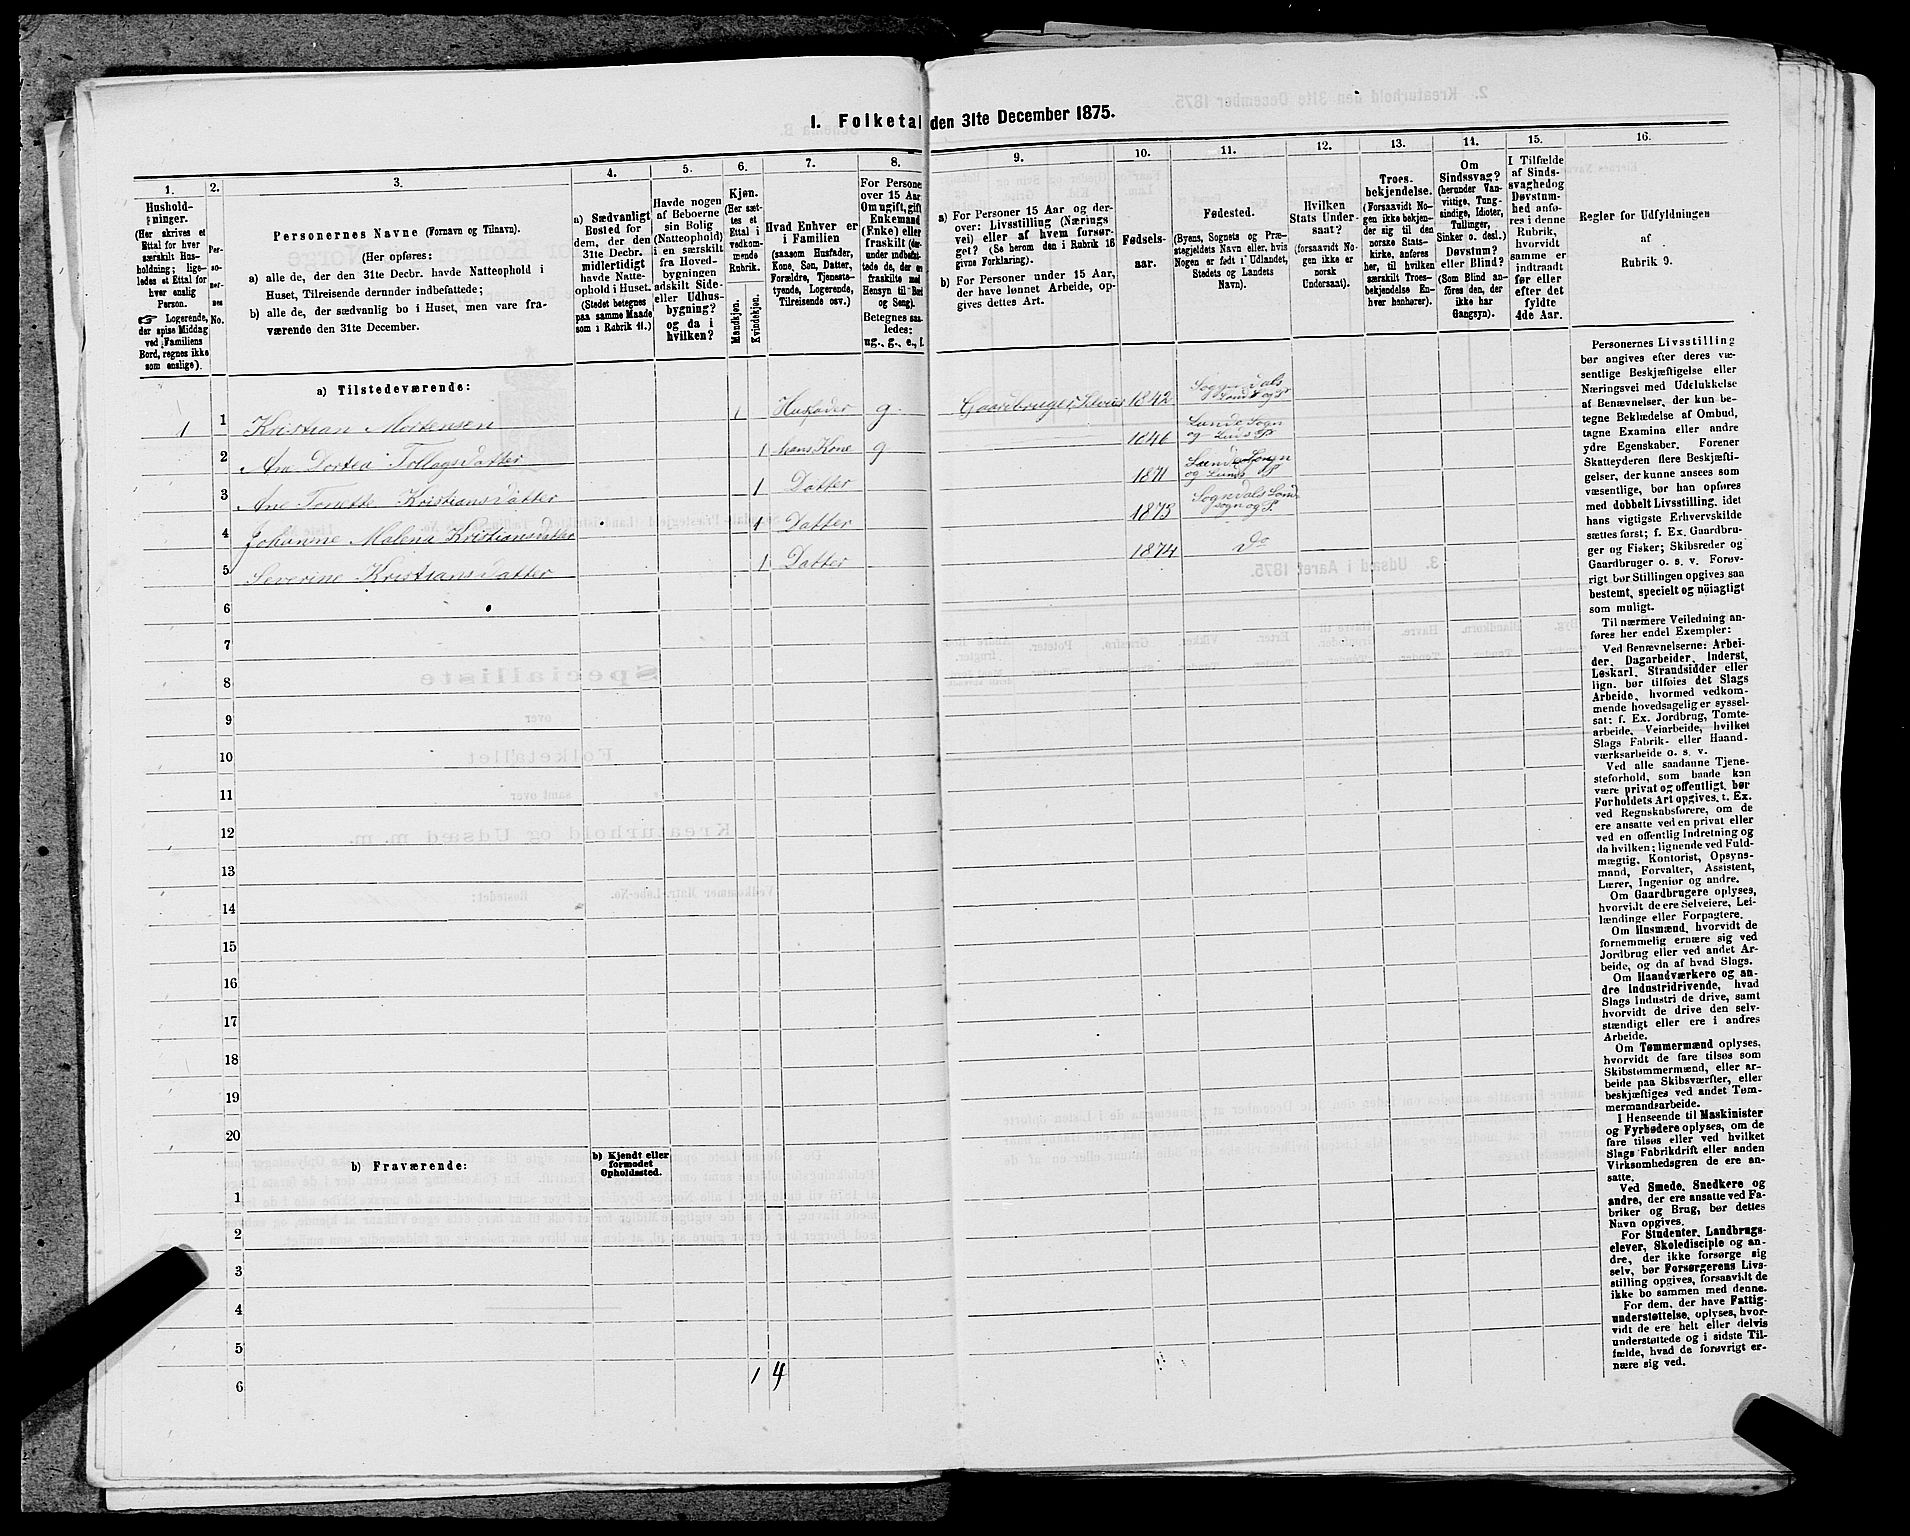 I. Folketal den 31te December 1875.
1. 2. 3. 4. 5. 6. 7. 8. 9. 10. 11. 12. 13. 14. 15. 16.
Hushold-
ninger.
(Her skrives et
Ettal for hver
særskilt Hus-
holdning; lige-
ledes et Ettal for
hver enslig
Person.
☞ Logerende,
der spise Middag
ved Familiens
Bord, regnes ikke
som enslige).
Per-
so-
ner-
nes
No.
Personernes Navne (Fornavn og Tilnavn).
(Her opføres:
a) alle de, der den 31te Decbr. havde Natteophold i
Huset, Tilreisende derunder indbefattede;
b) alle de, der sædvanlig bo i Huset, men vare fra-
værende den 31te December.
a) Sædvanligt
Bosted for
dem, der den
31te Decbr.
midlertidigt
havde Natte-
ophold i Huset.
(Stedet betegnes
paa samme Maade
som i Rubrik 11.)
Havde nogen
af Beboerne
sin Bolig
(Natteophold)
i en særskilt
fra Hoved-
bygningen
adskilt Side-
eller Udhus-
bygning?
og da i
hvilken?
Kjøn.
(Her sæt-
tes et
Ettal i
vedkom-
mende
Rubrik.
Mandkjøn.
Kvindekjøn.
Hvad Enhver er
i Familien
(saasom Husfader,
Kone, Søn, Datter,
Forældre, Tjeneste-
tyende, Logerende,
Tilreisende osv.)
For Persone
over 15 Aar
Om ugift, gift
Enkemand
(Enke) eller
fraskilt (der-
under indbefat-
tede de, der er
fraskilte med
Hensyn til Bord
og Seng).
Betegnes saa-
ledes:
ug., g., e., f.
a) For Personer 15 Aar og der-
over: Livsstilling (Nærings
vei) eller af hvem forsør-
get? (Se herom den i Rubrik 16
givne Forklaring).
b) For Personer under 15 Aar,
der have lønnet Arbeide, op-
gives dettes Art.
Fødsels-
aar.
Fødested.
(Byens, Sognets og Præ-
stegjeldets Navn eller, hvis
Nogen er født i Udlandet,
Stedets og Landets
Navn).
Hvilken
Stats Under-
saat?
(forsaavidt No-
gen ikke er
norsk
Undersaat).
Troes-
bekjendelse.
(Forsaavidt No-
gen ikke bekjen-
der sig til den
norske Stats-
kirke, anfø-
res her, til hvilken
særskilt Troes-
bekjendelse En-
hver henhører).
Om
Sindssvag?
(herunder Van-
vittige, Tung-
sindige, Idioter,
Tullinger,
Sinker o. desl.).
Døvstum?
eller Blind?
(Som Blind an-
føres den, der
ikke har
Gangsyn).
I Tilfælde
af Sinds-
svaghed og
Døvstum-
hed anfø-
res i denne
Rubrik,
hvorvidt
samme er
indtraadt
før eller
efter det
fyldte
4de Aar.
Regler for Udfyldningen
af
Rubrik 9.
a) Tilstedeværende:
1 1 Kristian Mortensen 1 Husfader g. Gaardbruger, 1842 Sogndals
Lands og P
2 Ane Dortea Tollagsdatter 1 hans Kone g 1846 Lunde Sogn
og Lunds P
3 Ane Tonette Kristiansdatter 1 Datter 1871 Lunde Sogn
og Lunds P
4 Johanne Malena Kristiansdatter 1 Datter 1873 Sogndals Land
sogn og P.
5 Severine Kristiansdatter 1 Datter 1874 Do
6
7
8
9
10
11
12
13
14
15
16
17
18
19
20
b) Fraværende:
b) Kjendt eller
formodet
Opholdssted.
1
2
3
4
5
6
1 4
Personernes Livsstilling
bør angives efter deres væ-
sentlige Beskjæftigelse eller
Næringsvei med Udelukkelse
af Benævnelser, der kun be-
tegne Beklædelse af Ombud,
tagne Examina eller andre
ydre Egenskaber. Forener
Skatteyderen flere Beskjæfti-
gelser, der kunne ansees som
væsentlige, bør han opføres
med dobbelt Livsstilling, idet
hans vigtigste Erhvervskilde
sættes først; f. Ex. Gaardbru-
ger og Fisker; Skibsreder og
Gaardbruger o. s. v. Forøv-
rigt bør Stillingen opgives saa
bestemt, specielt og nøiagtigt
som muligt.
Til nærmere Veiledning an-
føres her endel Exempler:
Ved Benævnelserne: Arbei-
der, Dagarbeider, Inderst,
Løskarl, Strandsidder eller
lign. bør tilføies det Slags
Arbeide, hvormed vedkom-
mende hovedsagelig er syssel-
sat; f. Ex. Jordbrug, Tomte-
arbeide, Veiarbeide, hvilket
Slags Fabrik- eller Haand-
værksarbeide o. s. v.
Ved alle saadanne Tjene-
steforhold, som baade kan
være privat og offentligt, bør
Forholdets Art opgives, t. Ex.
ved Regnskabsførere, om de
ere ansatte ved en privat eller
ved en offentlig Indretning og
da hvilken; lignende ved Fuld-
mægtig, Kontorist, Opsyns-
mand, Forvalter, Assistent,
Lærer, Ingeniør og andre.
Om Gaardbrugere oplyses,
hvorvidt de ere Selveiere, Lei-
lændinge eller Forpagtere.
Om Husmænd, hvorvidt de
fornemmelig ernære sig ved
Jordbrug eller ved andet Ar-
beide, og da af hvad Slags.
Om Haandværkere og an-
dre Industridrivende, hvad
Slags Industri de drive, samt
hvorvidt de drive den selv-
stændigt eller ere i andres
Arbeide.
Om Tømmermænd oplyses,
hvorvidt de fare tilsøs som
Skibstømmermænd, eller ar-
beide paa Skibsværfter, eller
beskjæftiges ved andet Tøm-
mermandsarbeide.
I Henseende til Maskinister
og Fyrbødere oplyses, om de
fare tilsøs eller ved hvilket
Slags Fabrikdrift eller anden
Virksomhedsgren de ere an-
satte.
Ved Smede, Snedkere og
andre, der ere ansatte ved Fa-
briker og Brug, bør dettes
Navn opgives.
For Studenter, Landbrugs-
elever, Skoledisciple og an-
dre, der ikke forsørge sig
selv, bør Forsørgerens Livs-
stilling opgives, forsaavidt de
ikke bo sammen med denne.
For dem, der have Fattig-
understøttelse, oplyses, hvor-
vidt de ere helt eller delvis
understøttede og i sidste Til-
fælde, hvad de forøvrigt er-
nære sig ved.